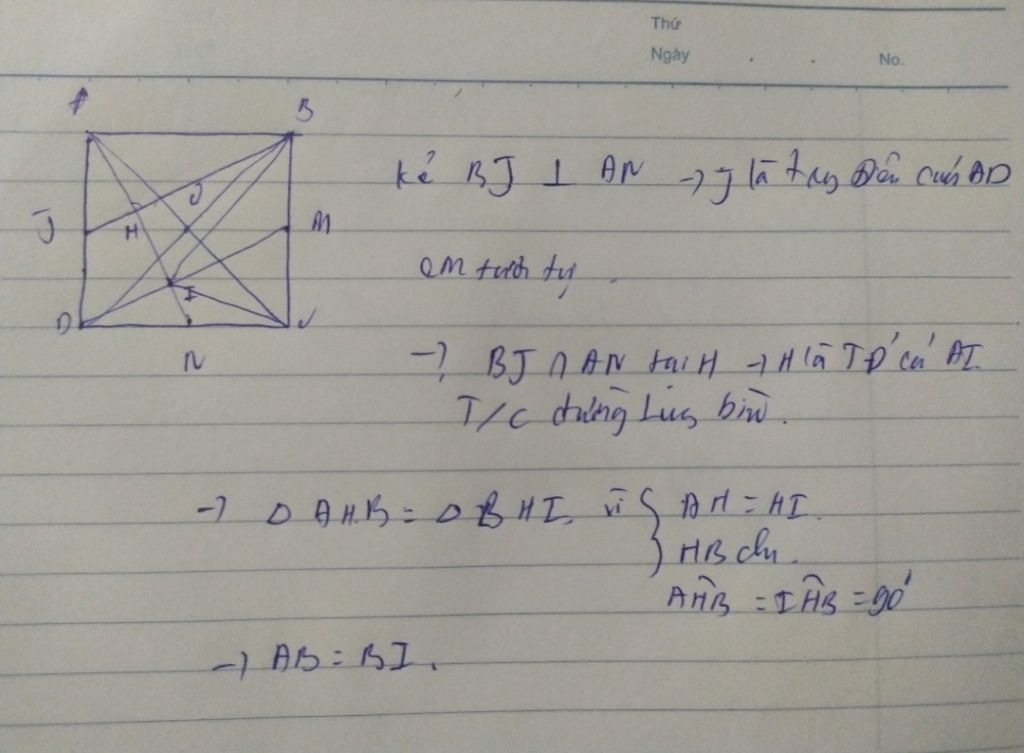 Thứ
Ngày . . No.
A B
J H M
D I N
Kẻ BJ ⊥ AN → J là của AD
DM tương tự.
→ BJ ∩ AN tại H → H là TĐ của AI
T/C đường trung bình.
→ Δ AHB = Δ BHI, vì { AH = HI.
HB chung.
AHB = IHB = 90°
→ AB = BI.